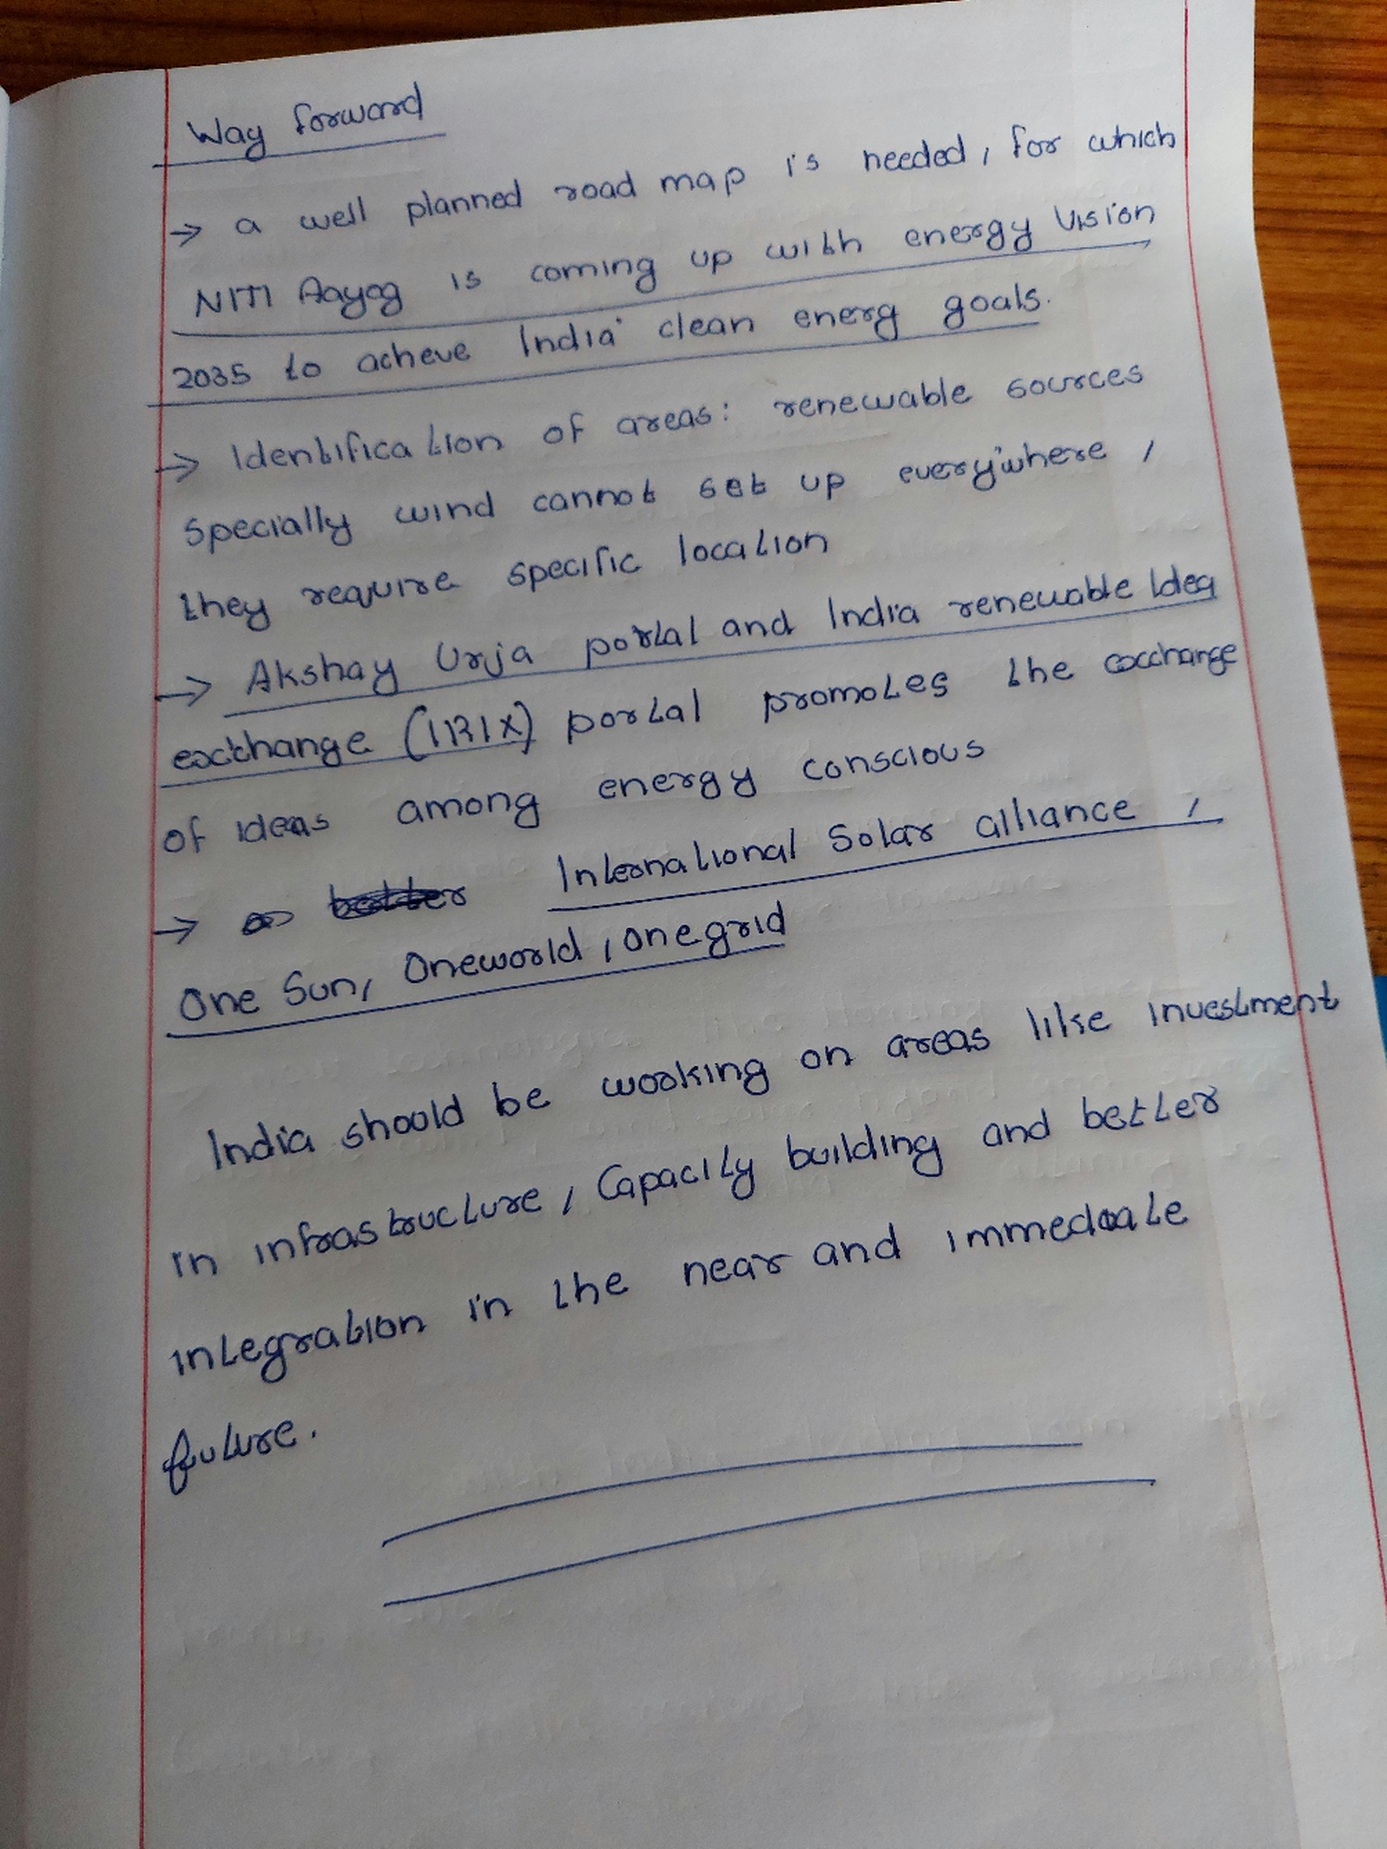 Way forward
→ a well planned road map is needed, for which
NITI Aayog is coming up with energy vision
2035 to acheve India' clean energ goals.
→ Identification of areas: renewable sources
specially wind cannot set up everywhere,
they require specific location
→ Akshay Urja portal and India renewable Idea
exchange (IRIX) portal promotes the exchange
of ideas among energy conscious
→ International Solar alliance,
One Sun, Oneworld, onegrid
India should be working on areas like investment
in infrastructure, Capacity building and better
integration in the near and immediate
future.